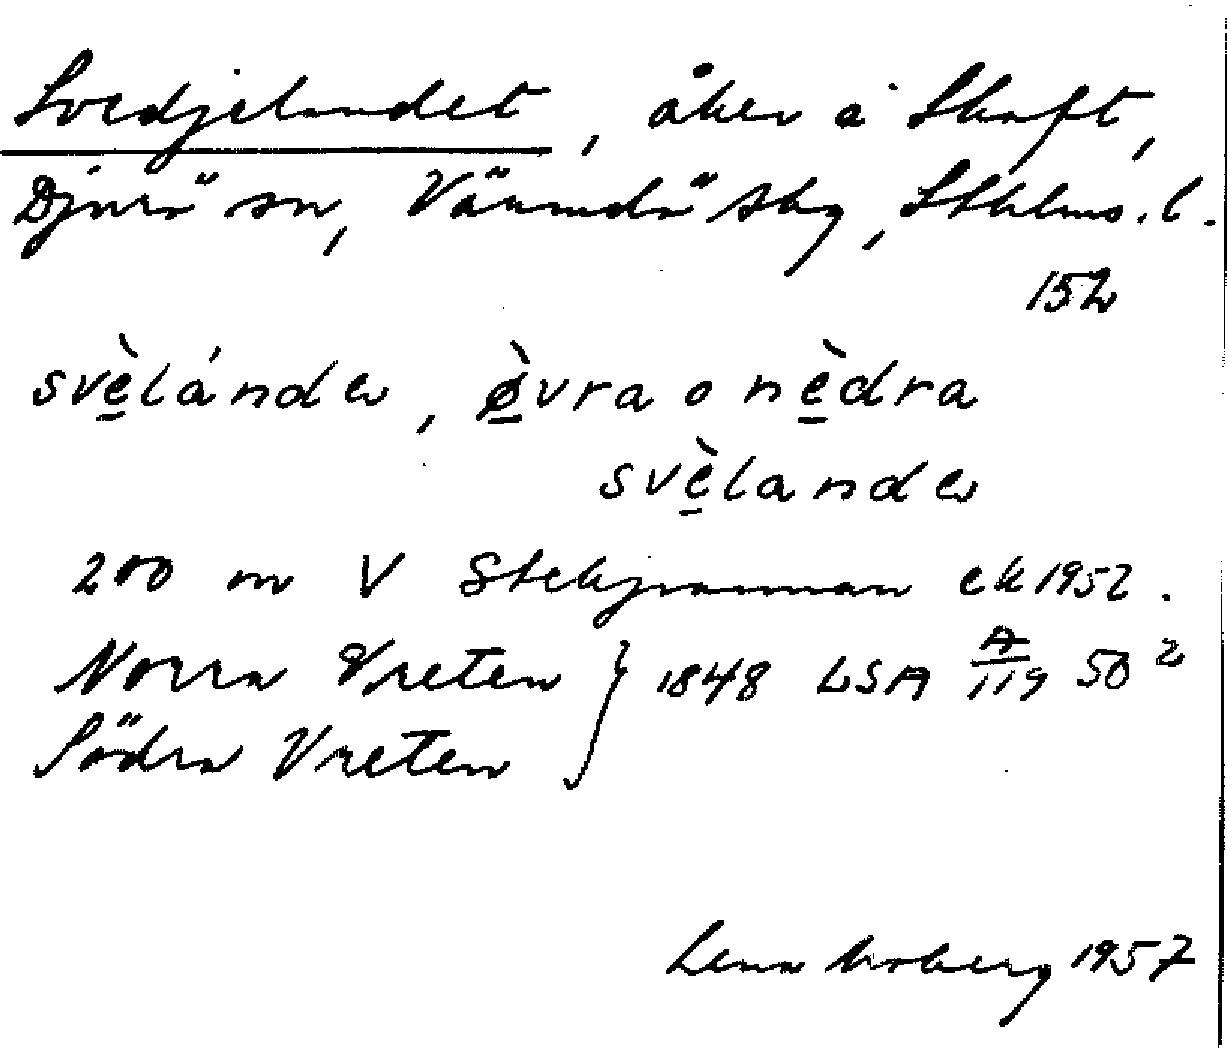 Svedjelandet, åker å Skaft,
Djurö sn, Värmdö skg, Sthlms. l.
152
svè̱lánde, ø̱̀vra o nè̱dra
svè̱lande
200 m V Stekpannan ek 1952.
Norra Vreten } 1848 LSA A/119 50²
Södra Vreten
Lena Moberg 1957